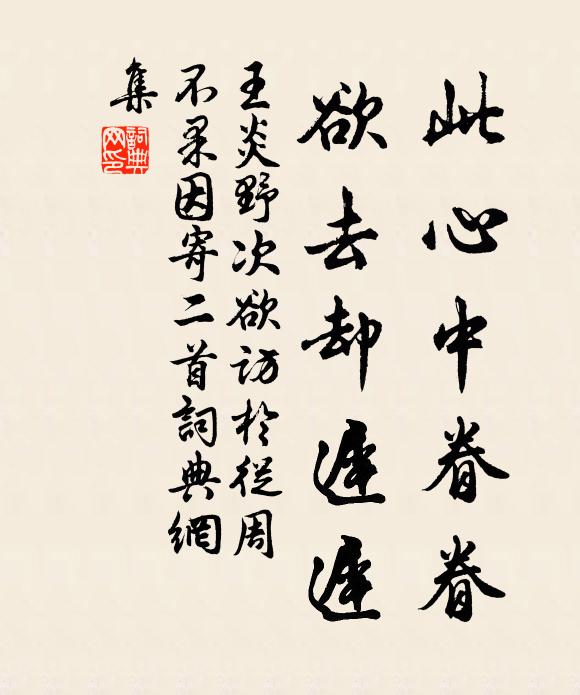 此心中眷眷
欲去却遲遲
王炎野次欲訪於從周
不果因寄二首詞典網
集
詞典網印